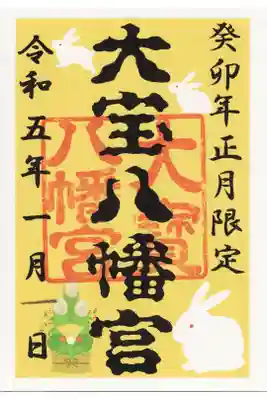 癸卯年正月限定
大宝八幡宮
大寶
八幡宮
令和五年一月 日